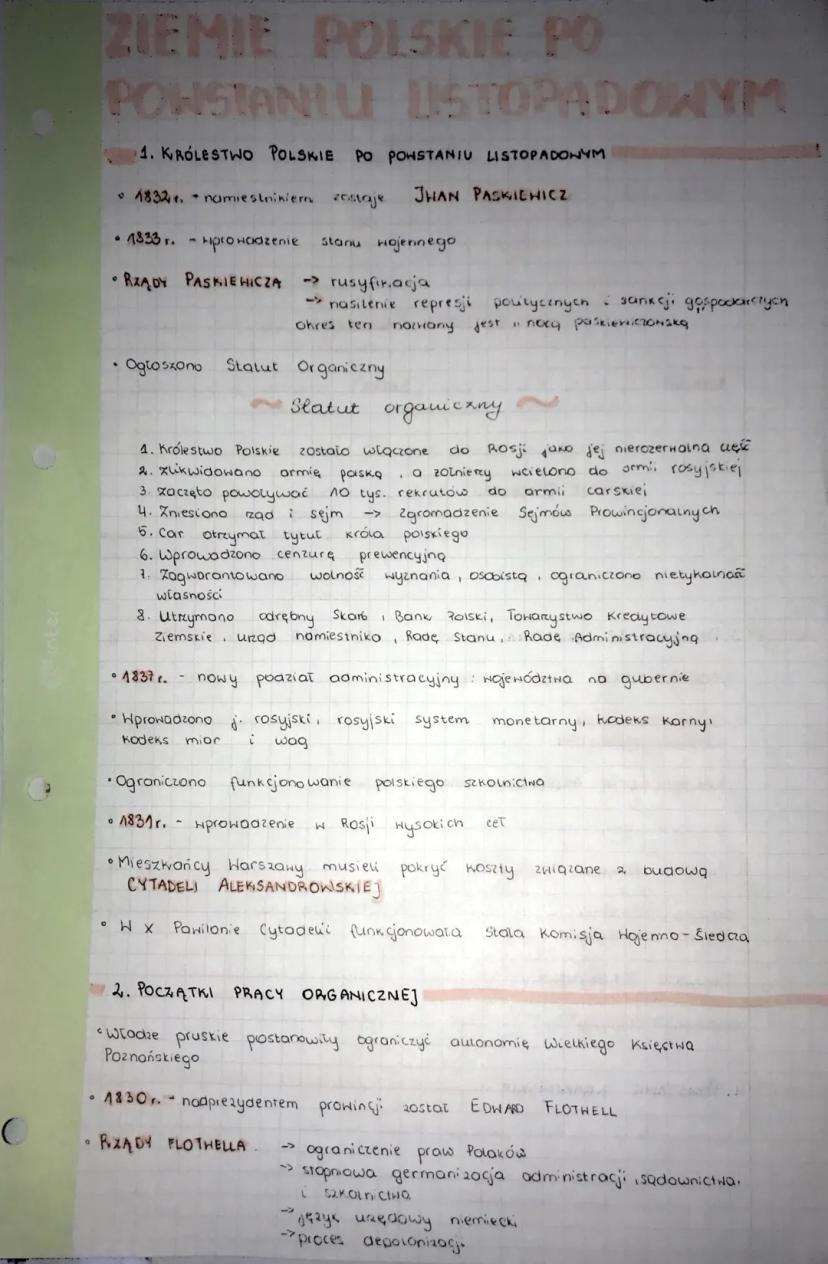 ZIEMIE POLSKIE PO
POWSTANIU LISTOPADOWYM
1. KRÓLESTWO POLSKIE PO POWSTANIU LISTOPADOWYM
• 1832 r. - namiestnikiem zostaje IWAN PASKIEWICZ
• 1833 r. - wprowadzenie stanu wojennego
• RZĄDY PASKIEWICZA -> rusyfikacja
-> nasilenie represji politycznych i sankcji gospodarczych
okres ten nazwany jest "nocą paskiewiczowską
• Ogłoszono Statut Organiczny
~ Statut organiczny ~
1. Królestwo Polskie zostało włączone do Rosji jako jej nierozerwalna część
2. Zlikwidowano armię polską, a żołnierzy wcielono do armii rosyjskiej
3. Zaczęto powoływać 10 tys. rekrutów do armii carskiej
4. Zniesiono rząd i sejm -> Zgromadzenie Sejmów Prowincjonalnych
5. Car otrzymał tytuł króla polskiego
6. Wprowadzono cenzurę prewencyjną
7. Zagwarantowano wolność wyznania, osobistą, ograniczono nietykalność
własności
8. Utrzymano odrębny Skarb, Bank Polski, Towarzystwo Kredytowe
Ziemskie, urząd namiestnika, Radę Stanu, Radę Administracyjną
• 1837 r. - nowy podział administracyjny: województwa na gubernie
• Wprowadzono j. rosyjski, rosyjski system monetarny, kodeks karny,
kodeks miar i wag
• Ograniczono funkcjonowanie polskiego szkolnictwa
• 1831 r. - wprowadzenie w Rosji wysokich ceł
• Mieszkańcy Warszawy musieli pokryć koszty związane z budową
CYTADELI ALEKSANDROWSKIEJ
• W X Pawilonie Cytadeli funkcjonowała Stała Komisja Wojenno-Śledcza
2. POCZĄTKI PRACY ORGANICZNEJ
• Władze pruskie postanowiły ograniczyć autonomię Wielkiego Księstwa
Poznańskiego
• 1830 r. - nadprezydentem prowincji został EDWARD FLOTWELL
• RZĄDY FLOTWELLA -> ograniczenie praw Polaków
-> stopniowa germanizacja administracji, sądownictwa,
i szkolnictwa
-> język urzędowy niemiecki
-> proces depolonizacji